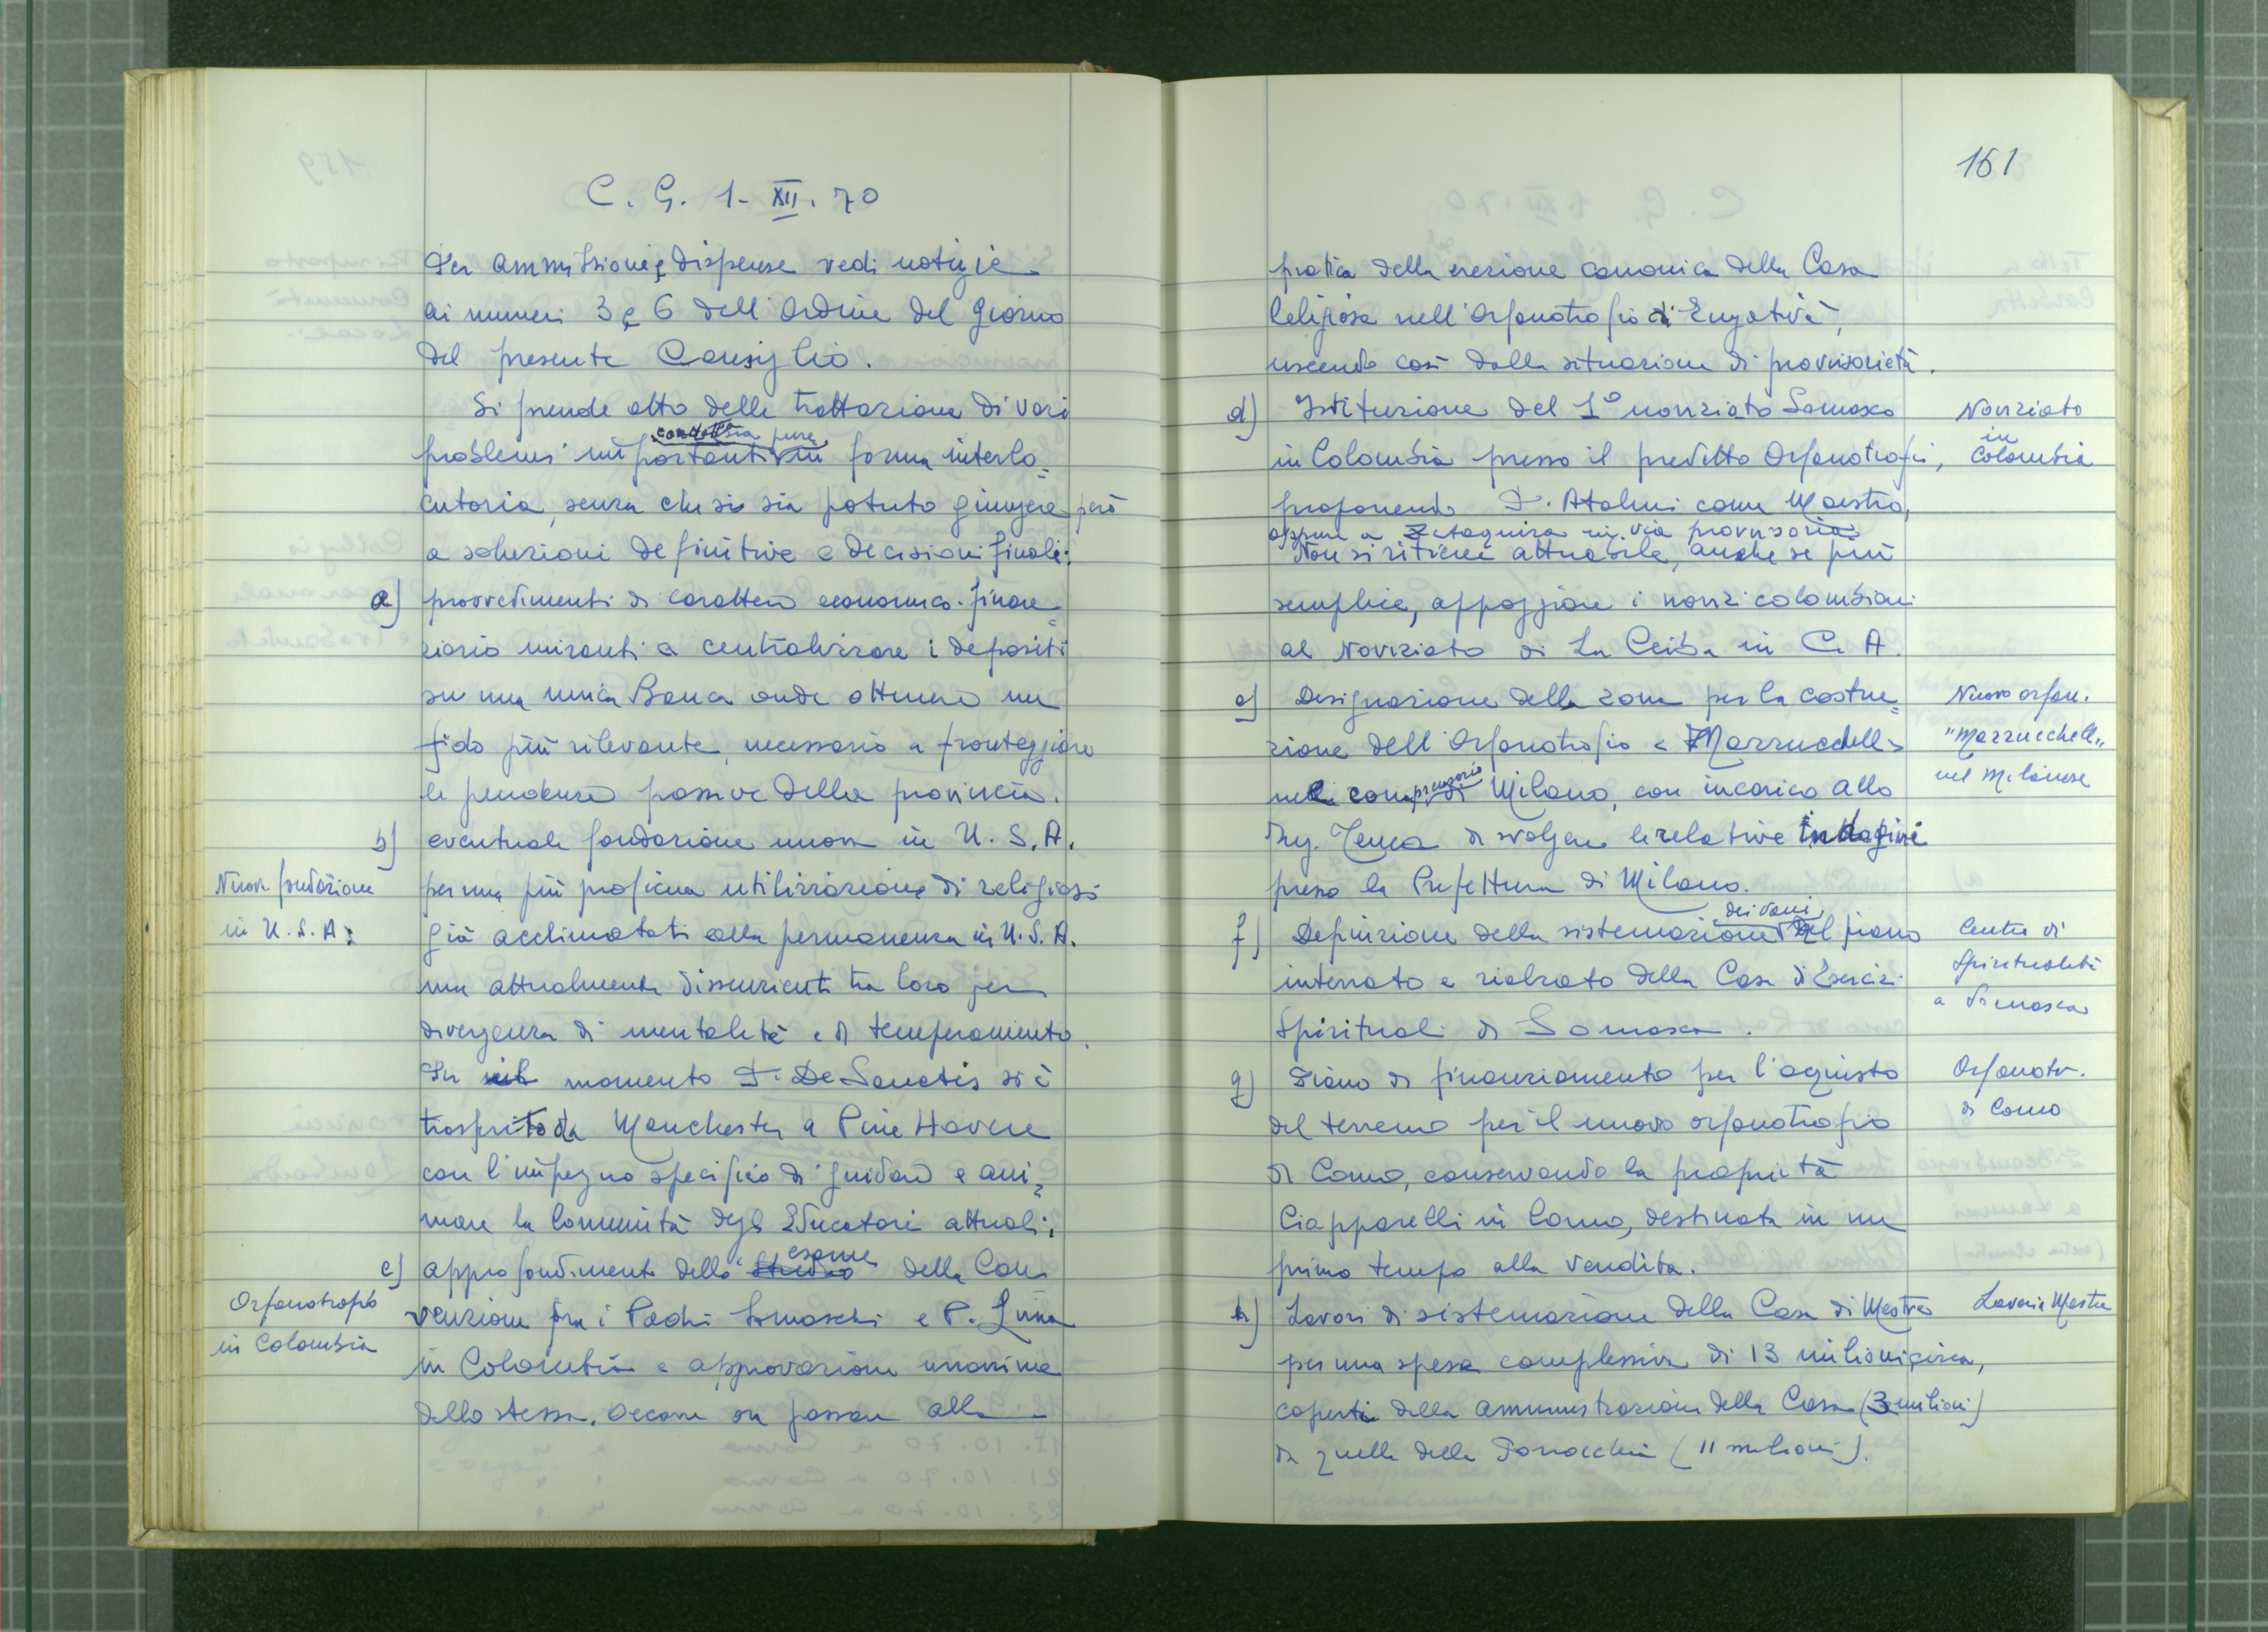 C. G. 1-XII. 70
Per ammissioni e dispense vedi notizie
ai numeri 3 e 6 dell'Ordine del giorno
del presente Consiglio.
Si prende atto della trattazione di vari
condotta sia pure
problemi importanti in forma interlo=
cutoria, senza che si sia potuto giungere però
a soluzioni definitive e decisioni finali:
a) provvedimenti di carattere economico-finan=
ziario miranti a centralizzare i depositi
su una unica Banca onde ottenere un
fido più rilevante, necessario a fronteggiare
le pendenze passive della provincia.
b) eventuale fondazione nuova in U.S.A.
Nuova fondazione
in U.S.A.:
per una più proficua utilizzazione di religiosi
già acclimatati alla permanenza in U.S.A.
ma attualmente dissenzienti tra loro per
divergenza di mentalità e di temperamento.
In momento P. De Sanctis si è
trasferito da Manchester a Pine Haven
con l'impegno specifico di guidare e ani=
mare la Comunità degli Educatori attuali;
esame
c) approfondimento dello studio della Con
Orfanotrofio
in Colombia
venzione fra i Padri Somaschi e P. Luna
in Colombia e approvazione unanime
della stessa. Occorre ora passare alla
161
pratica della erezione canonica della Casa
religiosa nell'Orfanotrofio di Engativà,
uscendo così dalla situazione di provvisorietà.
d) Istituzione del 1° noviziato Somasco
Noviziato
in
Colombia
in Colombia presso il predetto Orfanotrofio,
proponendo P. Atalmi come Maestro,
oppure a in via provvisoria
Non si ritiene attuabile, anche se più
semplice, appoggiare i novizi colombiani
al Noviziato di La Ceiba in C. A.
e) Designazione della zona per la costru=
Nuovo orfan.
"Mazzucchelli"
nel Milanese
zione dell'Orfanotrofio « Mazzucchelli »
nel comprensorio di Milano, con incarico allo
Ing. Tenca di svolgere le relative indagini
presso la Prefettura di Milano.
dei vani
f) Definizione della sistemazione del piano
Centro di
Spiritualità
a Somasca
interrato e rialzato della Casa di Esercizi
Spirituali di Somasca.
g) Piano di finanziamento per l'aquisto
Orfanotr.
di Como
del terreno per il nuovo orfanotrofio
di Como, conservando la proprietà
Ciapparelli in Como, destinata in un
primo tempo alla vendita.
h) Lavori di sistemazione della Casa di Mestre
Lavori a Mestre
per una spesa complessiva di 13 milioni circa,
coperti dalla amministrazione della Casa (3 milioni)
da quella della Parrocchia (11 milioni).